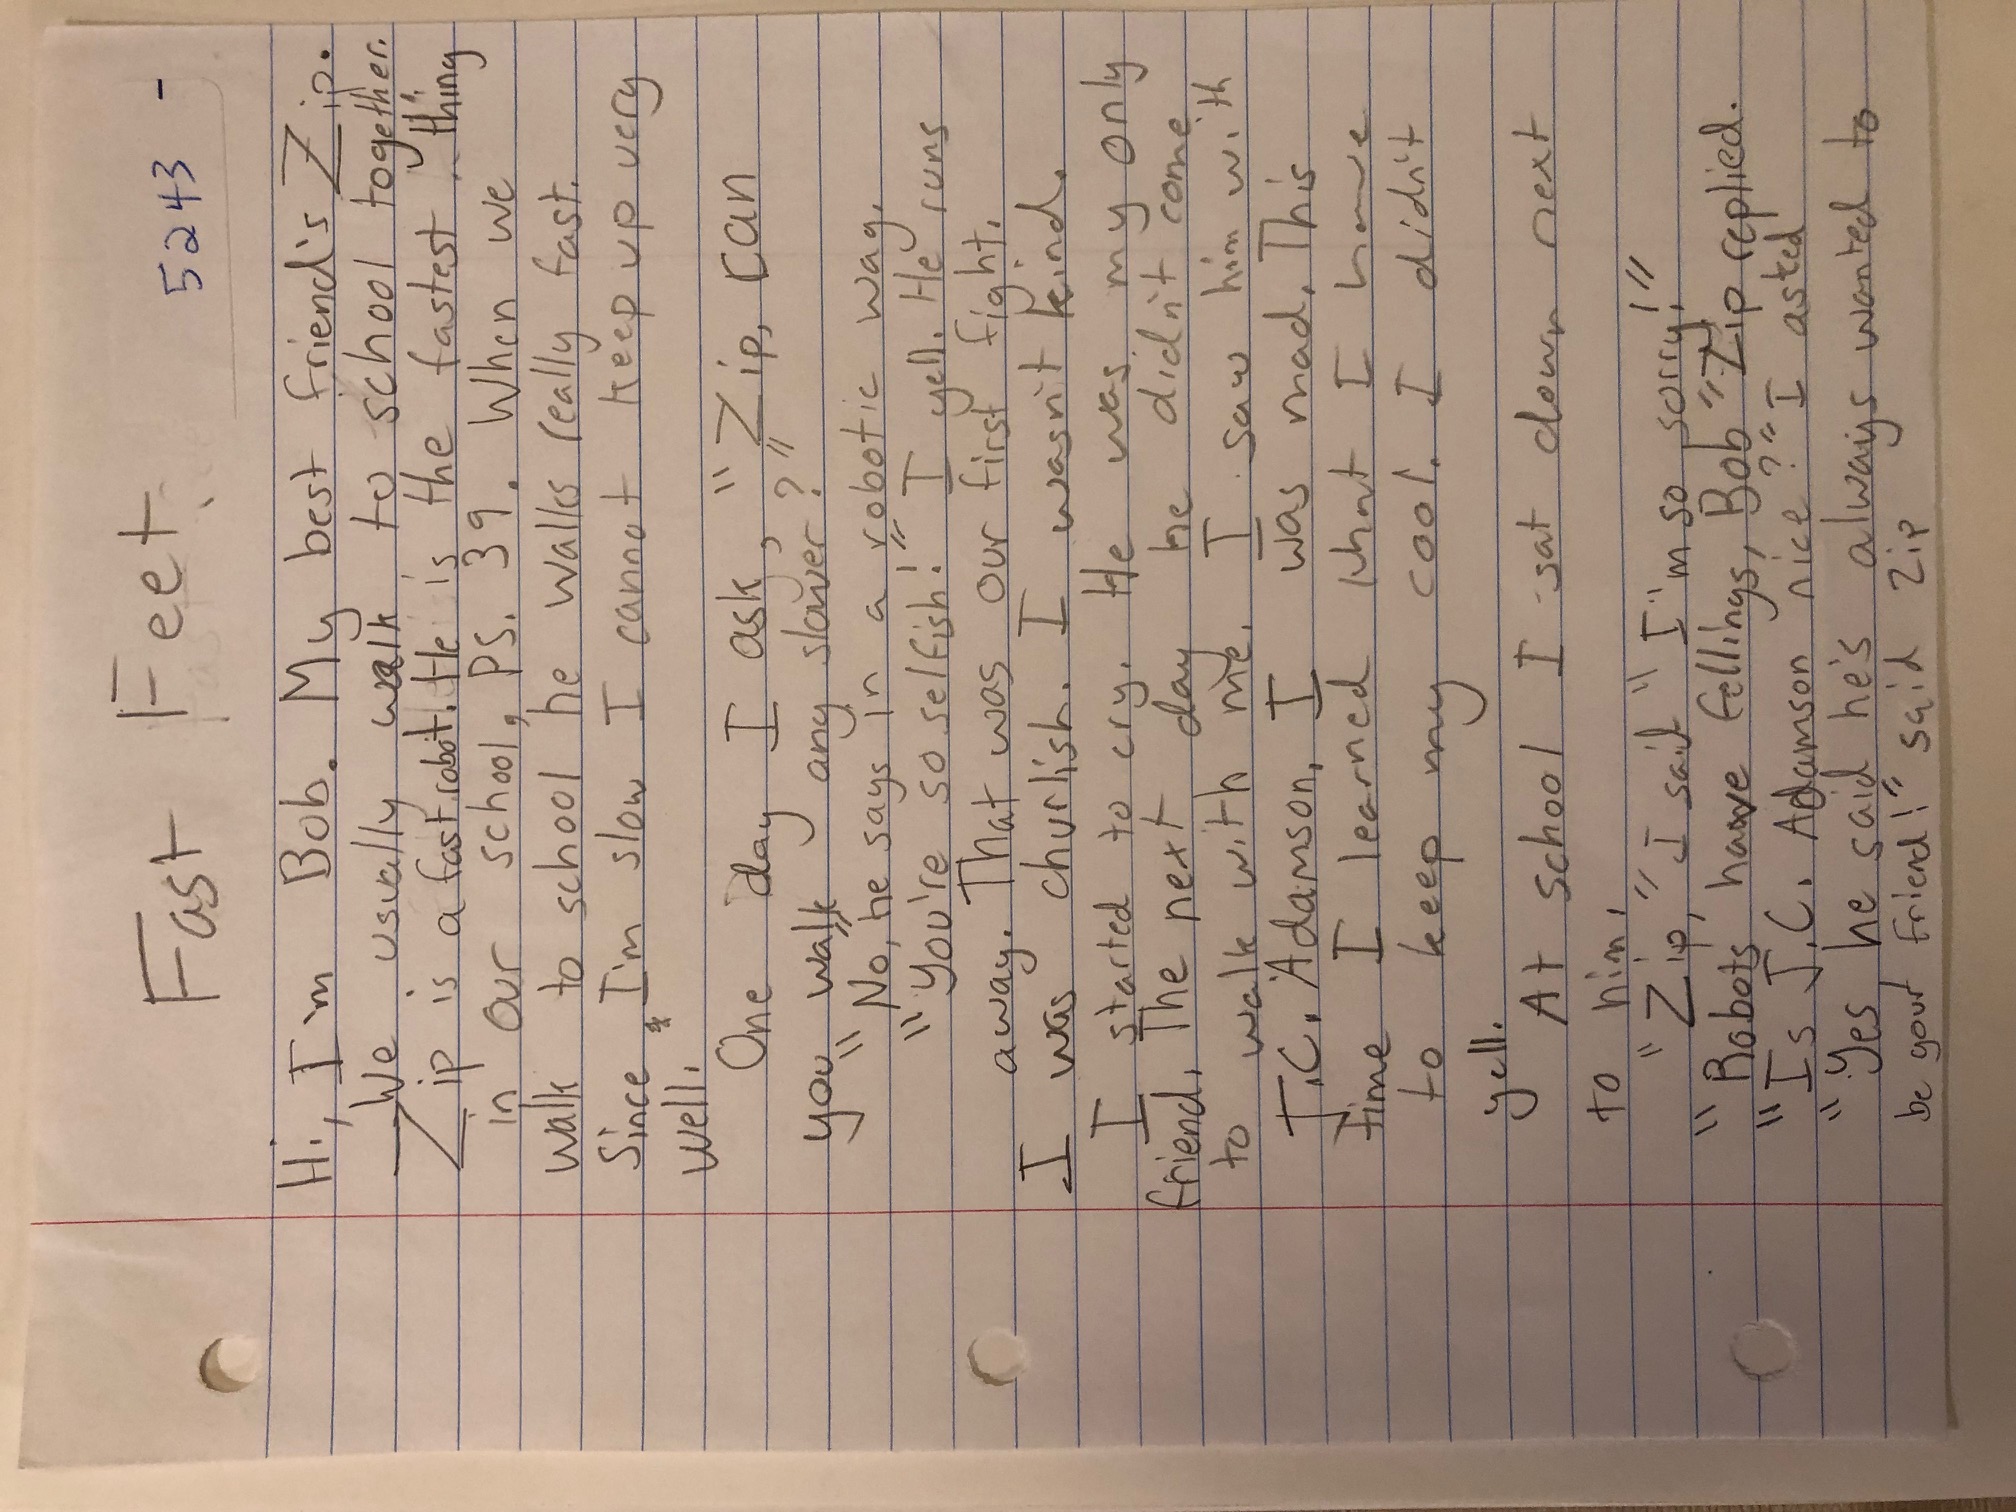 Fast Feet
5243 -
Hi, I'm Bob. My best friend's Zip.
We usually walk to school together.
Zip is a fast robot. He is the fastest thing
in our school, PS. 39. When we
walk to school he walks really fast.
Since I'm slow I cannot keep up very
well.
One day I ask, "Zip, can
you walk any slower?"
"No," he says in a robotic way.
"You're so selfish!" I yell. He runs
away. That was our first fight.
I was churlish. I wasn't kind.
I started to cry. He was my only
friend. The next day he didn't come
to walk with me. I saw him with
J.C. Adamson. I was mad. This
time I learned what I have
to keep my cool. I didn't
yell.
At school I sat down next
to him.
"Zip," I said "I'm so sorry!"
"Robots have fellings, Bob" Zip replied.
"Is J.C. Adamson nice?" I asked
"Yes, he said he's always wanted to
be your friend!" said Zip